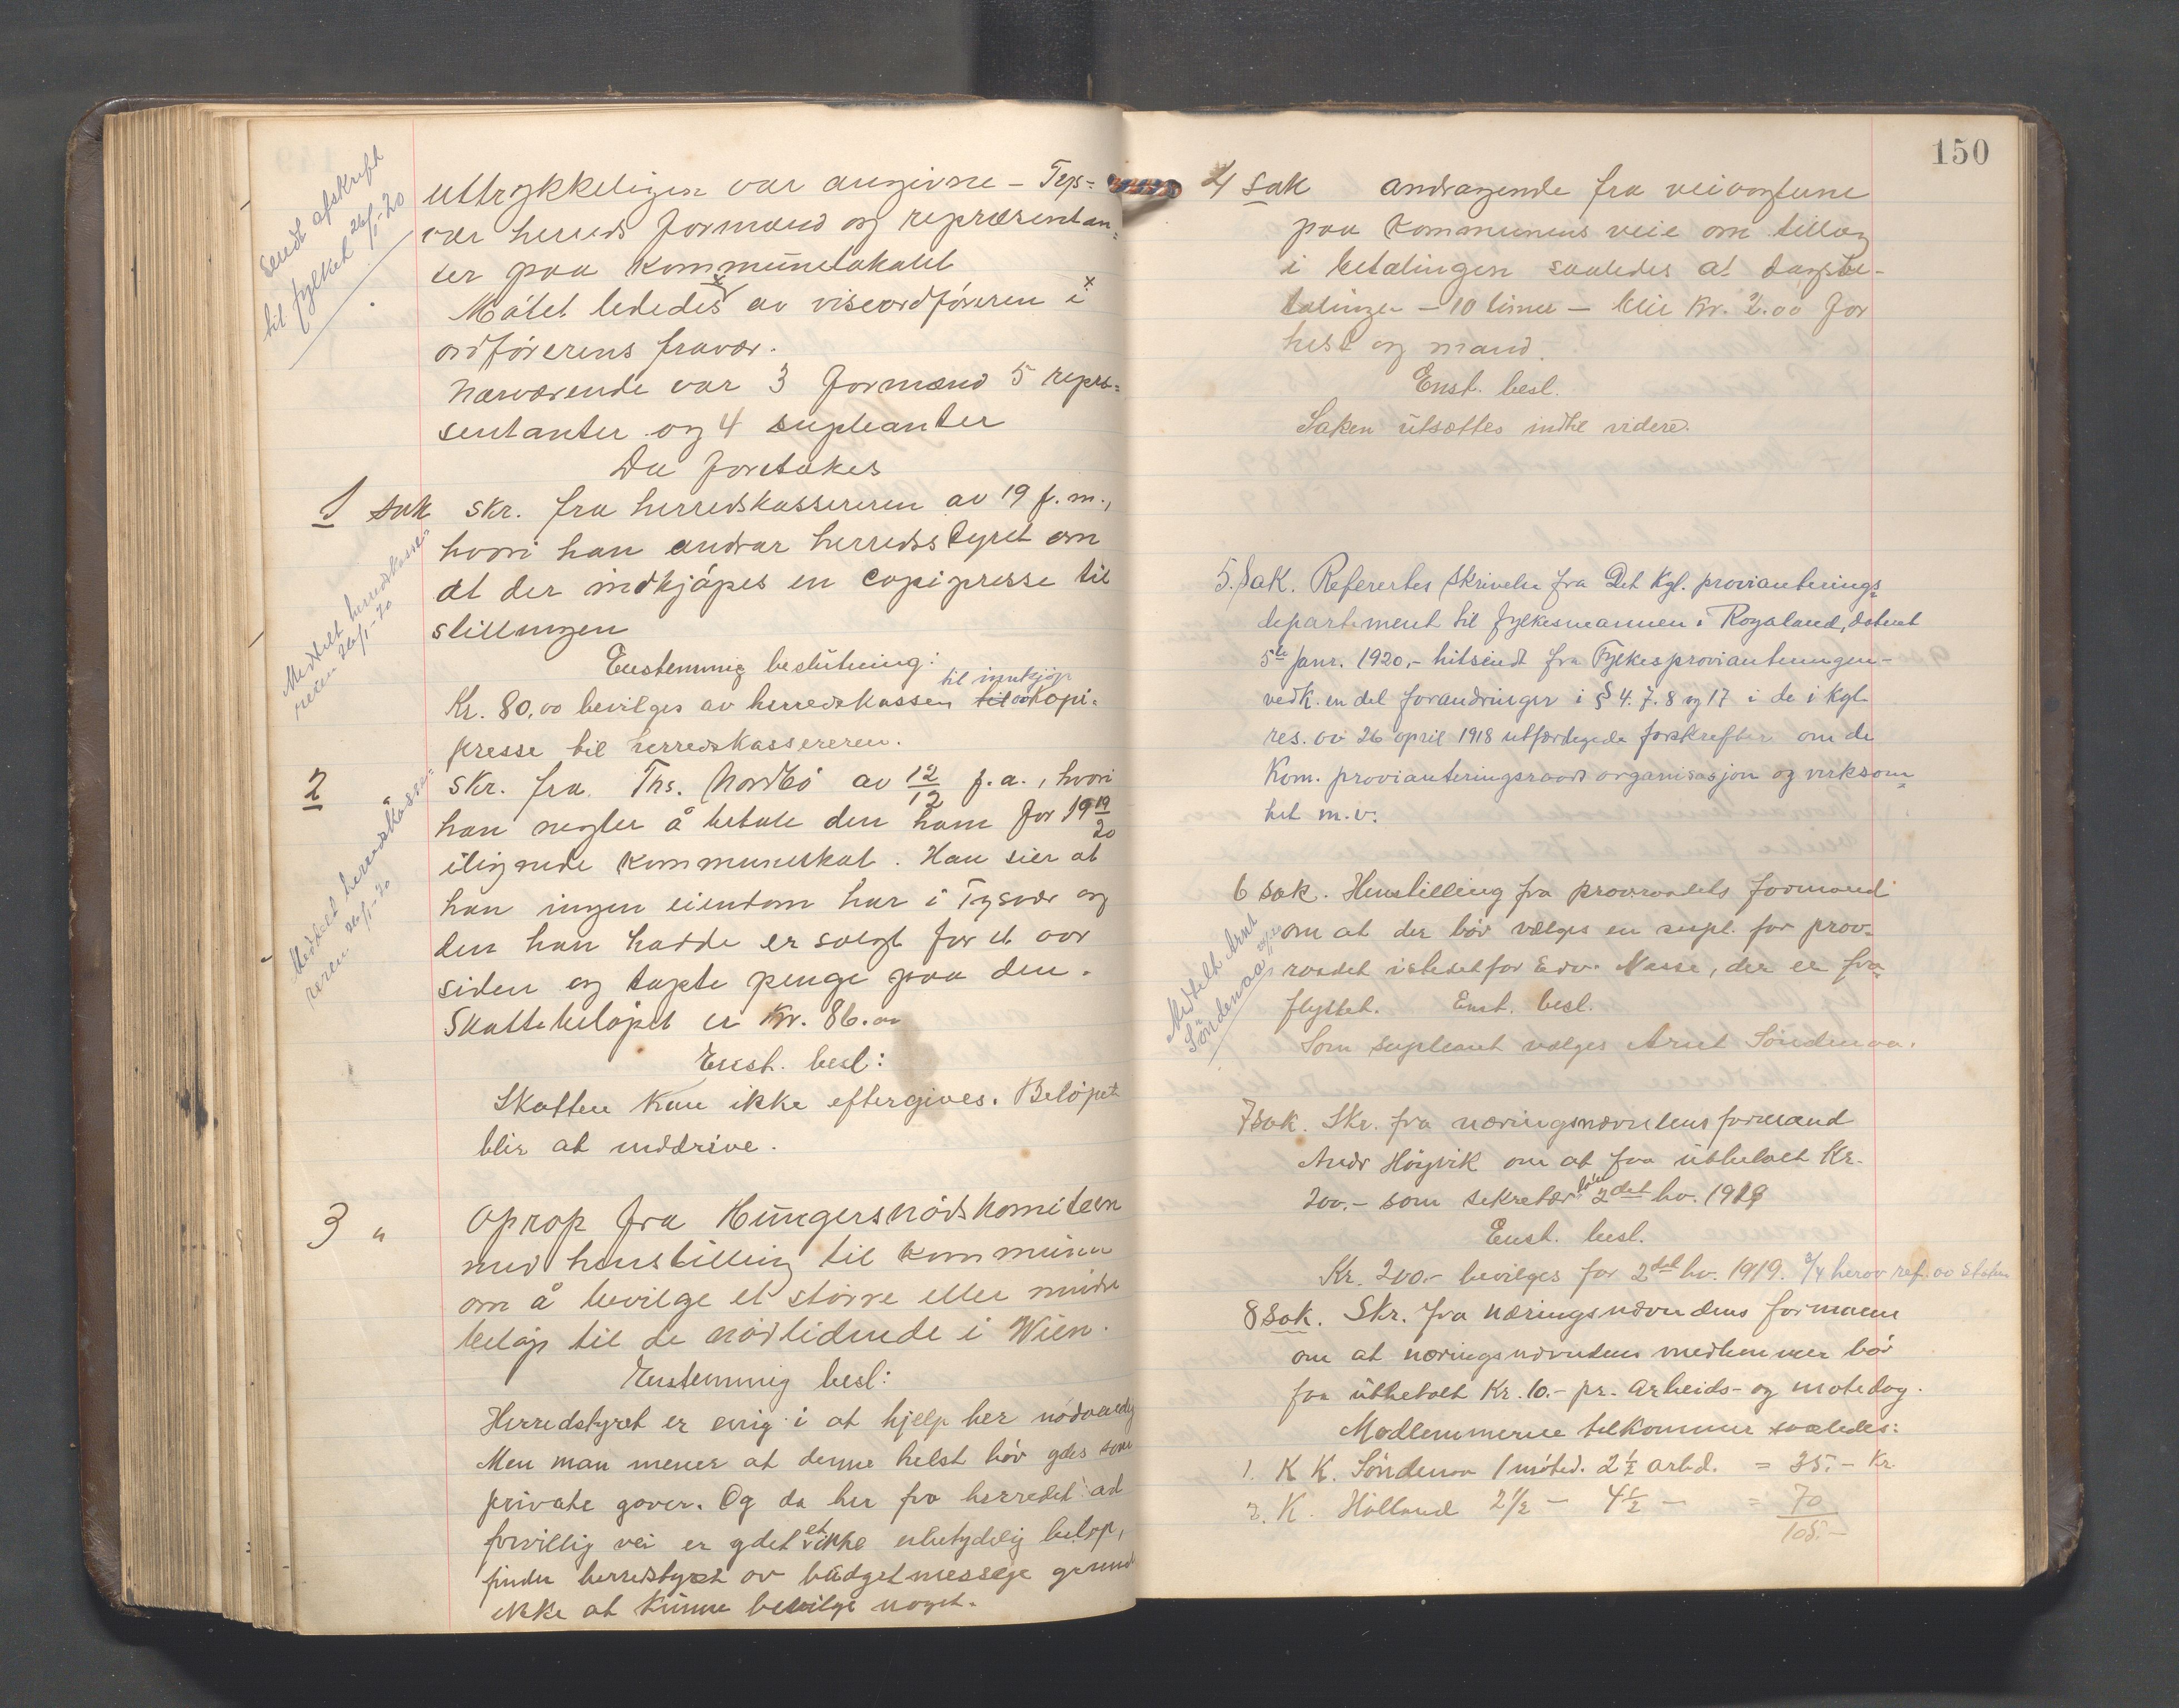 Sendt afskrift
til fylket 26/1-20
uttrykkeligen var angivne - Tys=
vær herreds formænd og repræsentan=
ter paa kommunelokalet
Møtet lededes av viseordføreren i x
ordførerens fravær.
Nærværende var 3 formænd 5 repræ=
sentanter og 4 supleanter
Da foretokes
1 sak skr. fra herredskassereren av 19 f.m.,
hvori han andrar herredsstyret om
at der indkjøpes en copipresse til
stillingen
Meddelt herredskasse-
reren 26/1-20
Enstemmig beslutning:
til innkjøp
Kr. 80,00 bevilges av herredskassen til kopi-
presse til herredskassereren.
2 " skr. fra Ths. Nordbø av 12/12 f.a., hvori
han negter å betale den ham for 1919/20
ilignede kommuneskat. Han sier at
han ingen eiendom har i Tysvær og
den han hadde er solgt for et aar
siden og tapte penge paa den.
Skattebeløpet er Kr. 86.00
Meddelt herredskasse-
reren 26/1-20
Enst. besl:
Skatten kan ikke eftergives. Beløpet
blir at inddrive.
3 " Oprop fra Hungersnødskomiteen
med henstilling til kommunen
om å bevilge et større eller mindre
beløp til de nødlidende i Wien.
Enstemmig besl:
Herredstyret er enig i at hjelp her nødvendig
Men man mener at denne helst bør ydes som
private gaver. Og da her fra herredet ad
frivillig vei er ydet et ikke ubetydelig beløp,
finder herredstyret av budgetmessige grunde
ikke at kunne bevilge noget.
150
4 sak andragende fra veivogterne
paa kommunens veie om tillæg
i betalingen saaledes at dagsbe-
talingen - 10 timer - blir kr. 2.00 for
hest og mand.
Enst. besl.
Saken utsættes indtil videre.
5. Sak. Referertes skrivelse fra Det Kgl. provianterings=
departement til fylkesmannen i Rogaland, datert
5te Janr. 1920,- hitsendt fra Fylkesprovianteringen-
vedk. en del forandringer i § 4. 7. 8 og 17 i de i Kgl.
res. av 26 april 1918 utfærdigede forskrefter om de
Kom. provianteringsraads organisasjon og virksom=
het m.v.
6 sak. Henstilling fra provraadets formand
om at der bør vælges en supl. for prov-
raadet istedetfor Edv. Nesse, der er fra-
flyttet. Enst. besl.
Som supleant vælges Arnt Søndenaa.
Meddelt Arnt
Søndenaa
7 sak. Skr. fra næringsnævndens formand
Andr Høyvik om at faa utbetalt Kr.
200.- som sekretær 2det hv. 1919
Enst. besl.
Kr. 200.- bevilges for 2det hv. 1919. 3/4 herav ref. av staten
8 sak. Skr. fra næringsnævndens formann
om at næringsnævndens medlemmer bør
faa utbetalt Kr. 10.- pr. arbeids- og møtedag.
Medlemmerne tilkommer saaledes:
1. K K. Søndenaa 1 møted. 2 1/2 arbd. = 35.- Kr
2. K. Hålland 2 1/2 - 4 1/2 - = 70
105.-